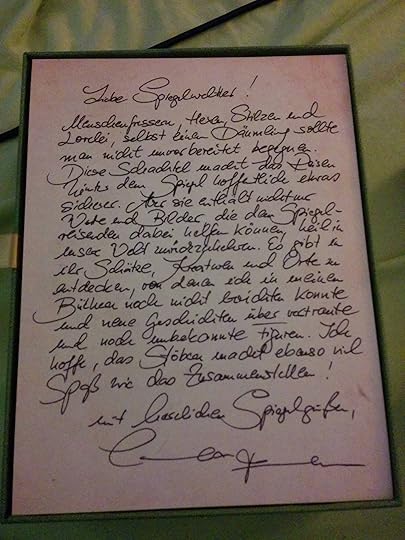 Liebe Spiegelweltler!
Menschenfressern, Hexen, Stilzen und
Lorelei, selbst einen Däumling sollte
man nicht unvorbereitet begegnen.
Diese Schachtel macht das Reisen
hinter dem Spiegel hoffentlich etwas
sicherer. Aber sie enthält nicht nur
Worte und Bilder, die dem Spiegel-
reisenden dabei helfen können, heil in
unsere Welt zurückzukehren. Es gibt in
ihr Schätze, Kreaturen und Orte zu
entdecken, von denen ich in meinen
Büchern noch nicht berichten konnte
und neue Geschichten über vertraute
und noch unbekannte Figuren. Ich
hoffe, das Stöbern macht ebenso viel
Spaß wie das Zusammenstellen!
mit herzlichen Spiegelgrüßen,